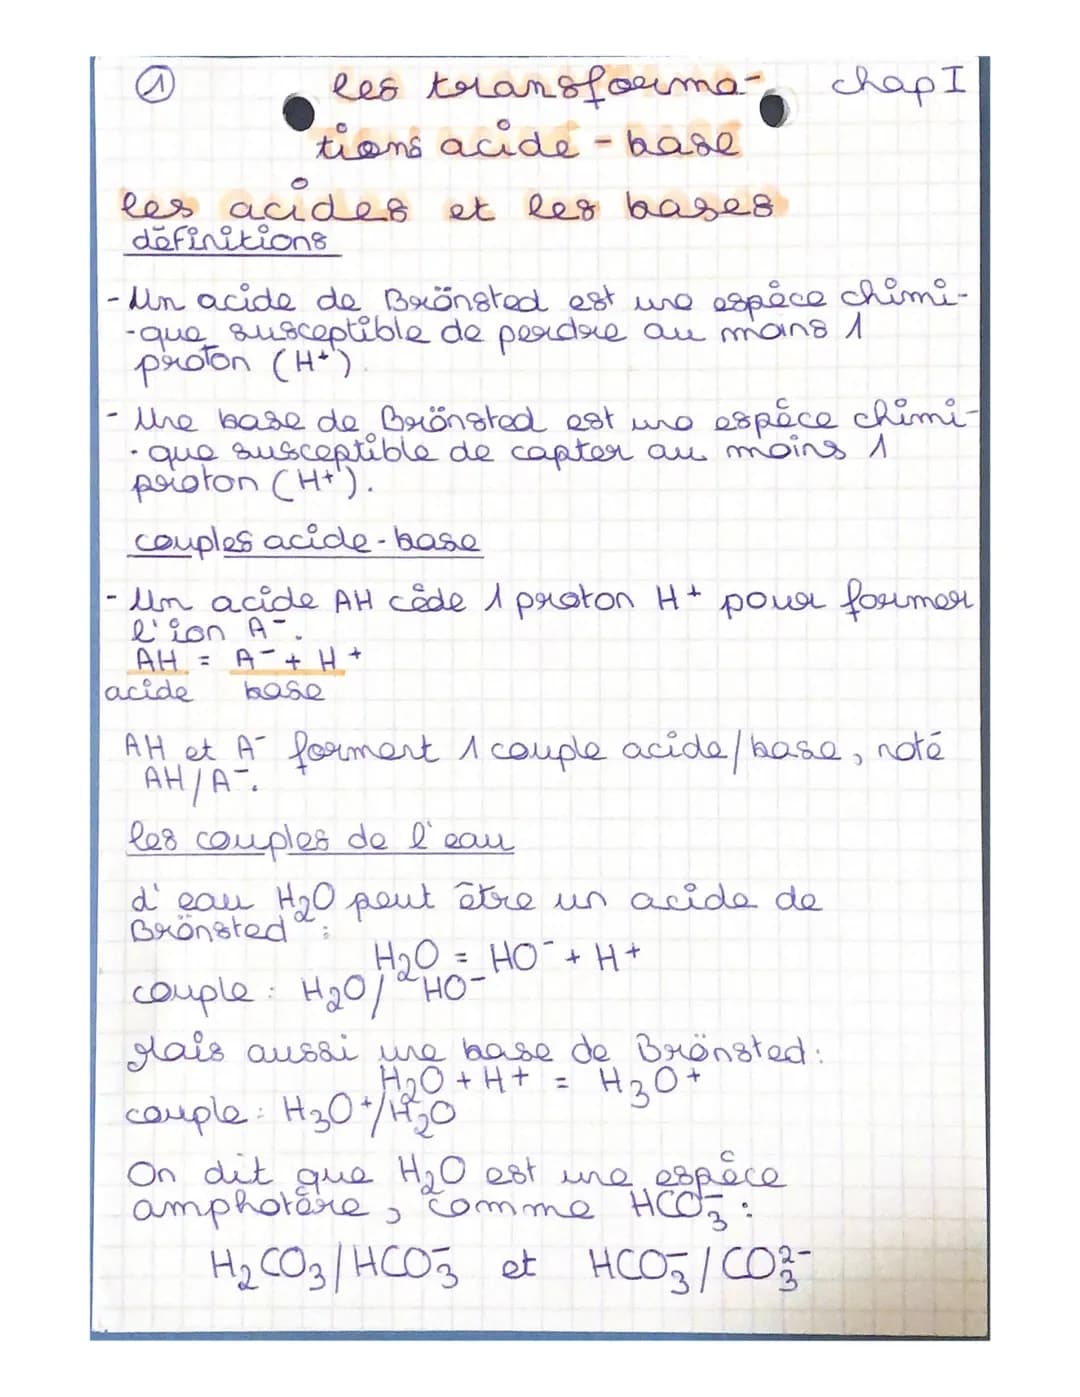 ① les transforma- chap I
tions acide - base
les acides et les bases
définitions
- Un acide de Brönsted est une espèce chimi-
-que susceptible de perdre au moins 1
proton (H⁺).
- Une base de Brönsted est une espèce chimi-
-que susceptible de capter au moins 1
proton (H⁺).
couples acide-base
- Un acide AH cède 1 proton H⁺ pour former
l'ion A⁻.
AH = A⁻ + H⁺
acide base
AH et A⁻ forment 1 couple acide/base, noté
AH/A⁻.
les couples de l'eau
L'eau H₂O peut être un acide de
Brönsted :
H₂O = HO⁻ + H⁺
couple : H₂O/HO⁻
Mais aussi une base de Brönsted :
H₂O + H⁺ = H₃O⁺
couple : H₃O⁺/H₂O
On dit que H₂O est une espèce
amphotère, comme HCO₃⁻ :
H₂CO₃/HCO₃⁻ et HCO₃⁻/CO₃²⁻